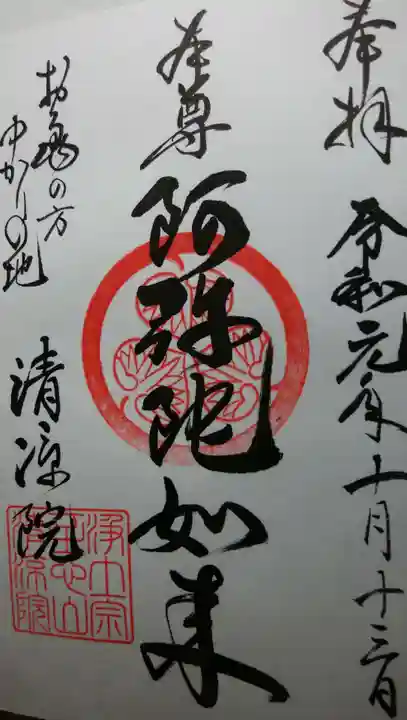 奉拝 令和元年十月十三日
本尊 阿弥陀如来
お亀の方
ゆかりの地
清涼院
浄土宗
清涼院